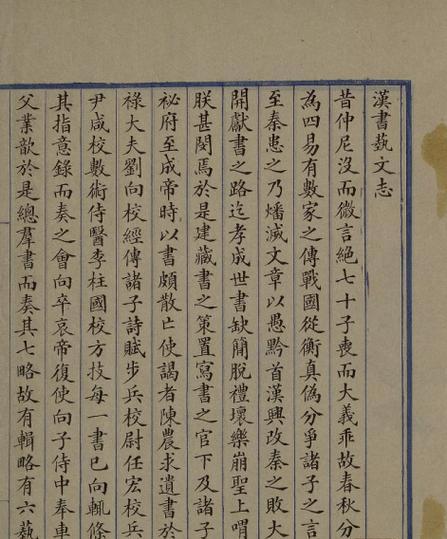 漢書藝文志
昔仲尼沒而微言絕七十子喪而大義乖故春秋分
為四易有數家之傳戰國從衡真偽分爭諸子之言
至秦患之乃燔滅文章以愚黔首漢興改秦之敗大
開獻書之路迄孝成世書缺簡脫禮壞樂崩聖上喟
朕甚閔焉於是建藏書之策置寫書之官下及諸子
祕府至成帝時以書頗散亡使謁者陳農求遺書於
祿大夫劉向校經傳諸子詩賦步兵校尉任宏校兵
尹咸校數術侍醫李柱國校方技每一書已向輒條
其指意錄而奏之會向卒哀帝復使向子侍中奉車
父業歆於是總羣書而奏其七略故有輯略有六藝